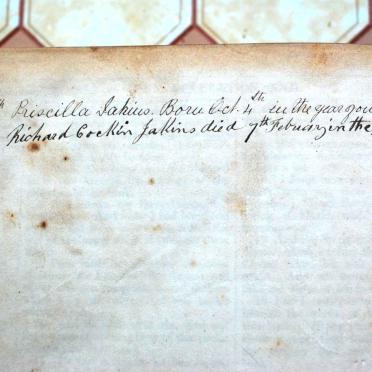 Priscilla Jakins. Born Oct. 4th in the year of our
Richard Cockin Jakins died 7th Febuary in the